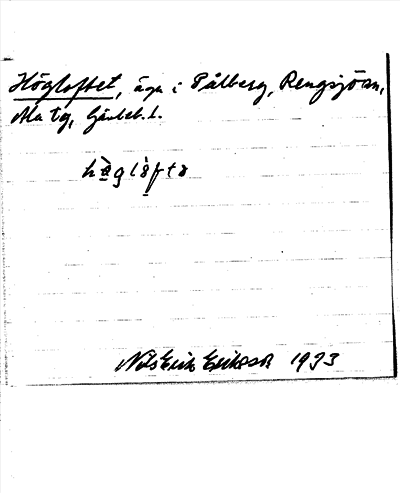 Högloftet, äga i Pålberg, Rengsjösn,
Ala tg, Gävleb. l.
Nils Erik Eriksson 1933